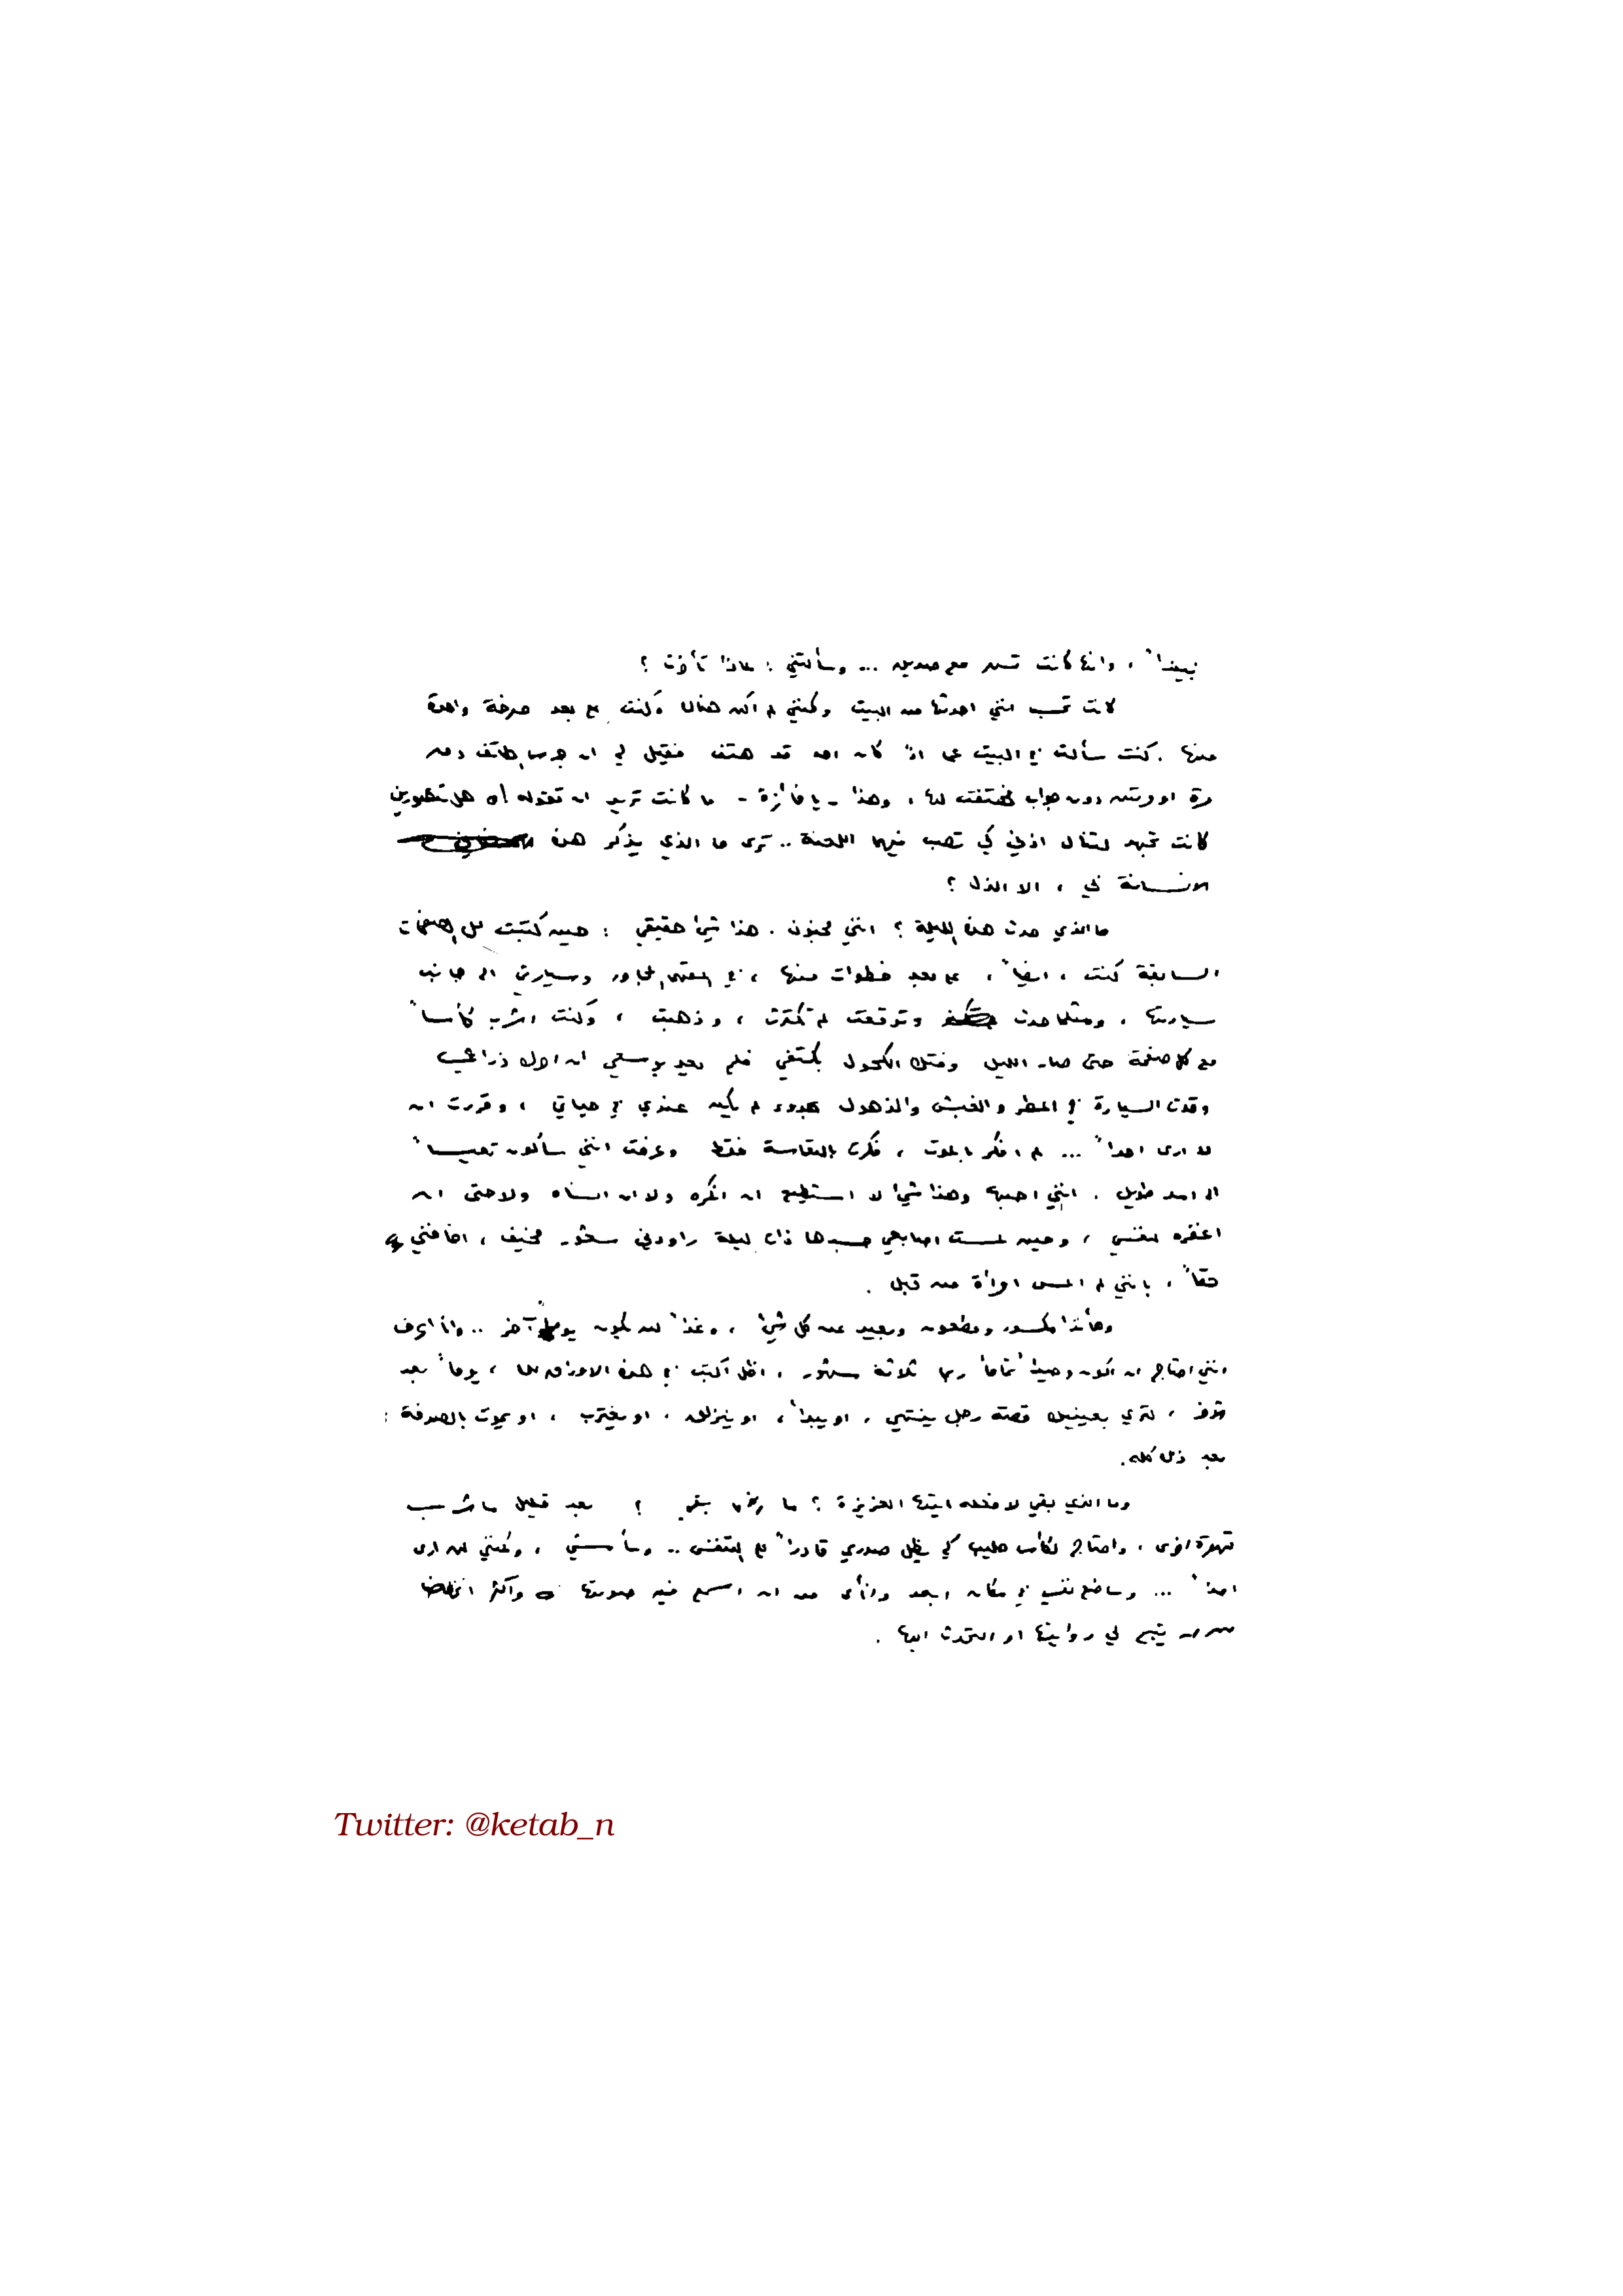 نبيذاً ، وانها كانت تسهر مع صديق ... وسألتني : لماذا تأخرت ؟
كانت تحسب انني احدثها من البيت ولكنني لم اكن هناك وكنت على بعد صرخة واحدة
منها . كنت سألت في البيت عما اذا كان احد قد هتف فقيل لي ان جرس الهاتف رن
مرة او مرتين دون جواب فهتفت لها ، وهذا - يا فائزة - ما كانت تريد ان تقوله
كانت تجهد لتنال اذني كي تصب فيها اللعنة .. ترى ما الذي يذكر هذه
الانسانة في ، الا الذل ؟
ما الذي حدث هذه الليلة ؟ انني مجنون . هذا شيء حقيقي : حين كتبت لك الصفحات
السابقة كنت ، ايضاً ، على بعد خطوات منها ، في المقهى المجاور وسيارتي الى جانب
سيارتها ، ومثلما حدث وتوقعت لم تكترث ، وذهبت ، وكنت اشرب كأساً
مع كل صفحة حتى صار الليل وفتك الكحول بكتفي فلم يعد بوسعي ان احرك ذراعي
وقدت السيارة في المطر والغبش والذهول بهدوء لم يكن عندي في حياتي ، وقررت ان
لا ارى احداً ... لم افكر بالموت ، فكرت بالتعاسة فقط وعرفت انني سأكون تعيساً
الى امد طويل . انني احبها وهذا شيء لا استطيع ان انكره ولا ان انساه ولا حتى ان
اغفره لنفسي ، وحين لمست اصابعي جسدها ذات ليلة راودني شعور مخيف ، اخافني
حقاً ، بأنني لم المس امرأة من قبل .
وهأنذا مكسور ومطعون وبعيد عن كل شيء ، وغداً لن يكون يوماً آخر .. وانا اعرف
انني احتاج ان اكون وحيداً تماماً ربما ثلاثة شهور ، اظل اكتب في هذه الاوراق لك ، يوماً بعد
يوم ، لتري بعينيك قصة رجل ينتهي ، او يبدأ ، او ينزلق ، او يغترب ، او يموت بالصدفة :
بعد ذلك كله .
وما الذي بقي لافعله ايتها العزيزة ؟ ما ؟ بعد قليل سأشرب
قهوة اخرى ، واحتاج لكأس حليب كي يظل صدري قادراً على التنفس .. وسأمشي ، ولكنني لن ارى
احداً ... وسأضع نفسي في مكان ابعد وانأى من ان اسمع فيه صوتها واكثر انخفاضا
من ان يتيح لي رؤيتها او التحدث اليها .
Twitter: @ketab_n